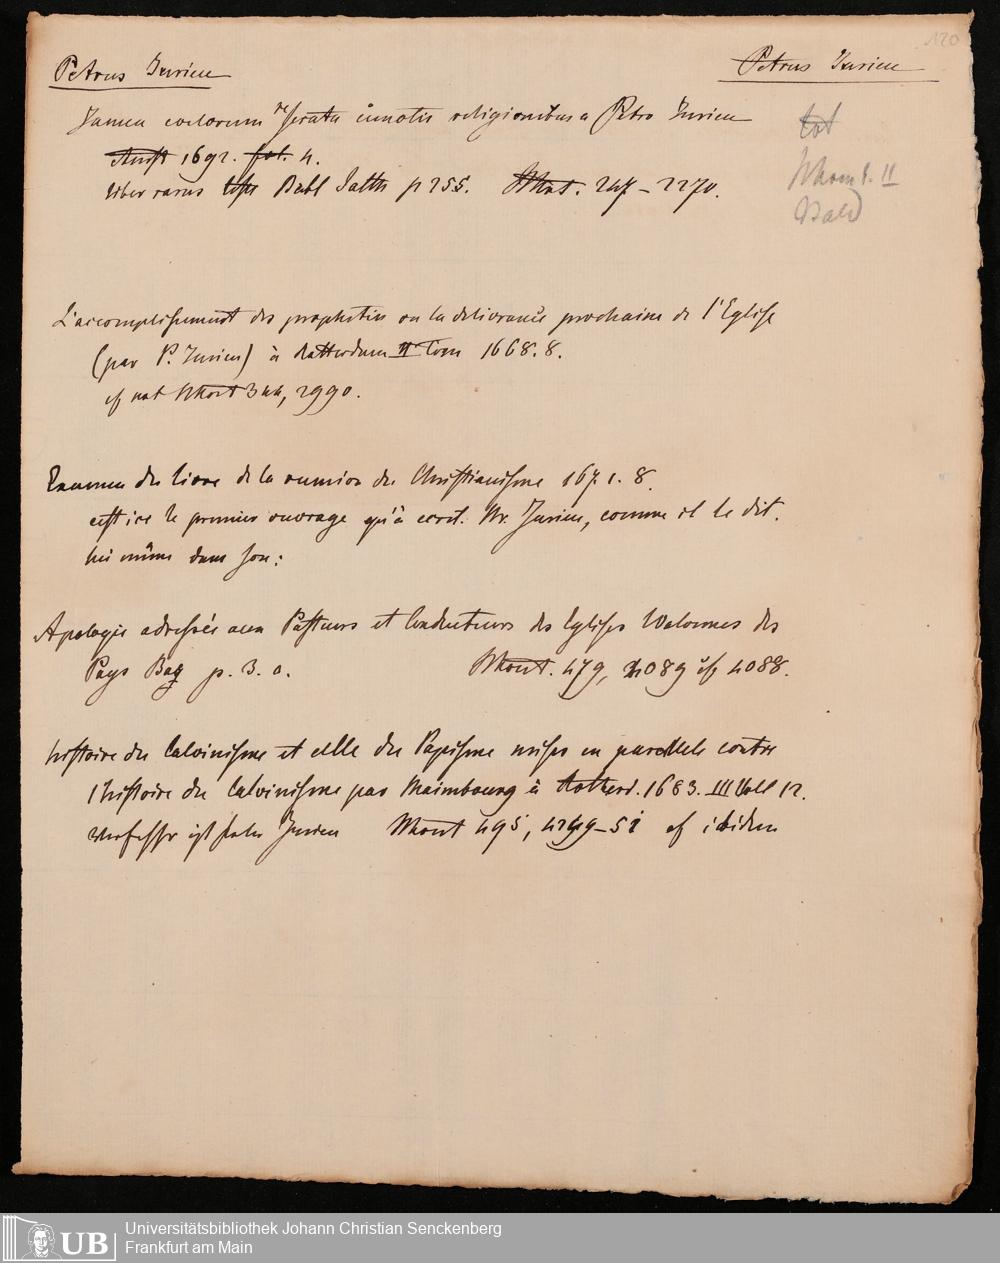 120
Petrus Jurieu Petrus Jurieu
Janua coelorum reserata cunctis religionibus a Petro Jurieu
Amst 1692. fol. 4.
liber rarus Bibl Salth p 255. 247 – 2270.
tot
II
Bald
L'accomplissement des propheties ou la delivrance prochaine de l'Eglise
(par P. Jurieu) à Rotterdam II Tom 1668. 8.
cf not 344, 2990.
Examen du livre de la reunion du Christianisme 1671. 8.
c'est ici le premier ouvrage qu'à ecrit. Mr. Jurieu, comme il le dit.
lui même dans son:
Apologie adressée aux Pasteurs et Conducteurs des Eglises Walonnes des
Pays Bas p. 3. a. 479, 4089 cf 4088.
histoire du Calvinisme et celle du Papisme mises en parallele contre
l'histoire du Calvinisme par Maimbourg à Rotterd. 1683. III Voll 12.
Verfasser ist Peter Jurieu 495, 4249–51 cf ibidem
UB
Universitätsbibliothek Johann Christian Senckenberg
Frankfurt am Main